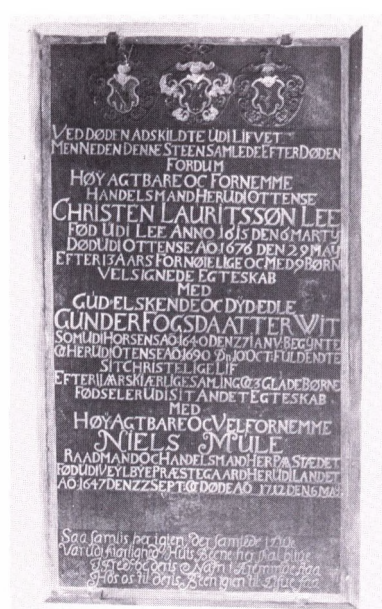 VED DØDEN ADSKILDTE UDI LIFVET
MEN NEDEN DENNE STEEN SAMLEDE EFTER DØDEN
FORDUM
HØYAGTBARE OC FORNEMME
HANDELSMAND HER UDI OTTENSE
CHRISTEN LAURITSSØN LEE
FØD UDI LEE ANNO 1615 DEN 6 MARTY
DØD UDI OTTENSE AO 1676 DEN 29 MAY
EFTER 13 AARS FORNØIELIGE OC MED 9 BØRN
VELSIGNEDE EGTESKAB
MED
GUDELSKENDE OC DYDEDLE
GUNDER FOGSDAATTER WIT
SOM UDI HORSENS AO 1640 DEN 27 IANV. BEGYNTE
OC HER UDI OTENSE AO 1690 Dn 10 OCT. FULDENDTE
SIT CHRISTELIGE LIF
EFTER AARS KIÆRLIGE SAMLING OC 3 GLADE BØRNE
FØDSELER UDI SIT ANDET EGTESKAB
MED
HØYAGTBARE OC VELFORNEMME
NIELS MULE
RAADMAND OC HANDELSMAND HER PAA STÆDET
FØD UDI VEYLBYE PRÆSTEGAARD HER UDI LANDET
AO 1647 DEN 22 SEPT. OC DØDE AO 1712 DEN 6 MAY
Saa samlis her igien, der samlede i
Var udi Kierlighed, Huis Beene her skal blive
I Fred, oc deris Nafn i Hiemme
Hos os til deris Been igien til Liise faa